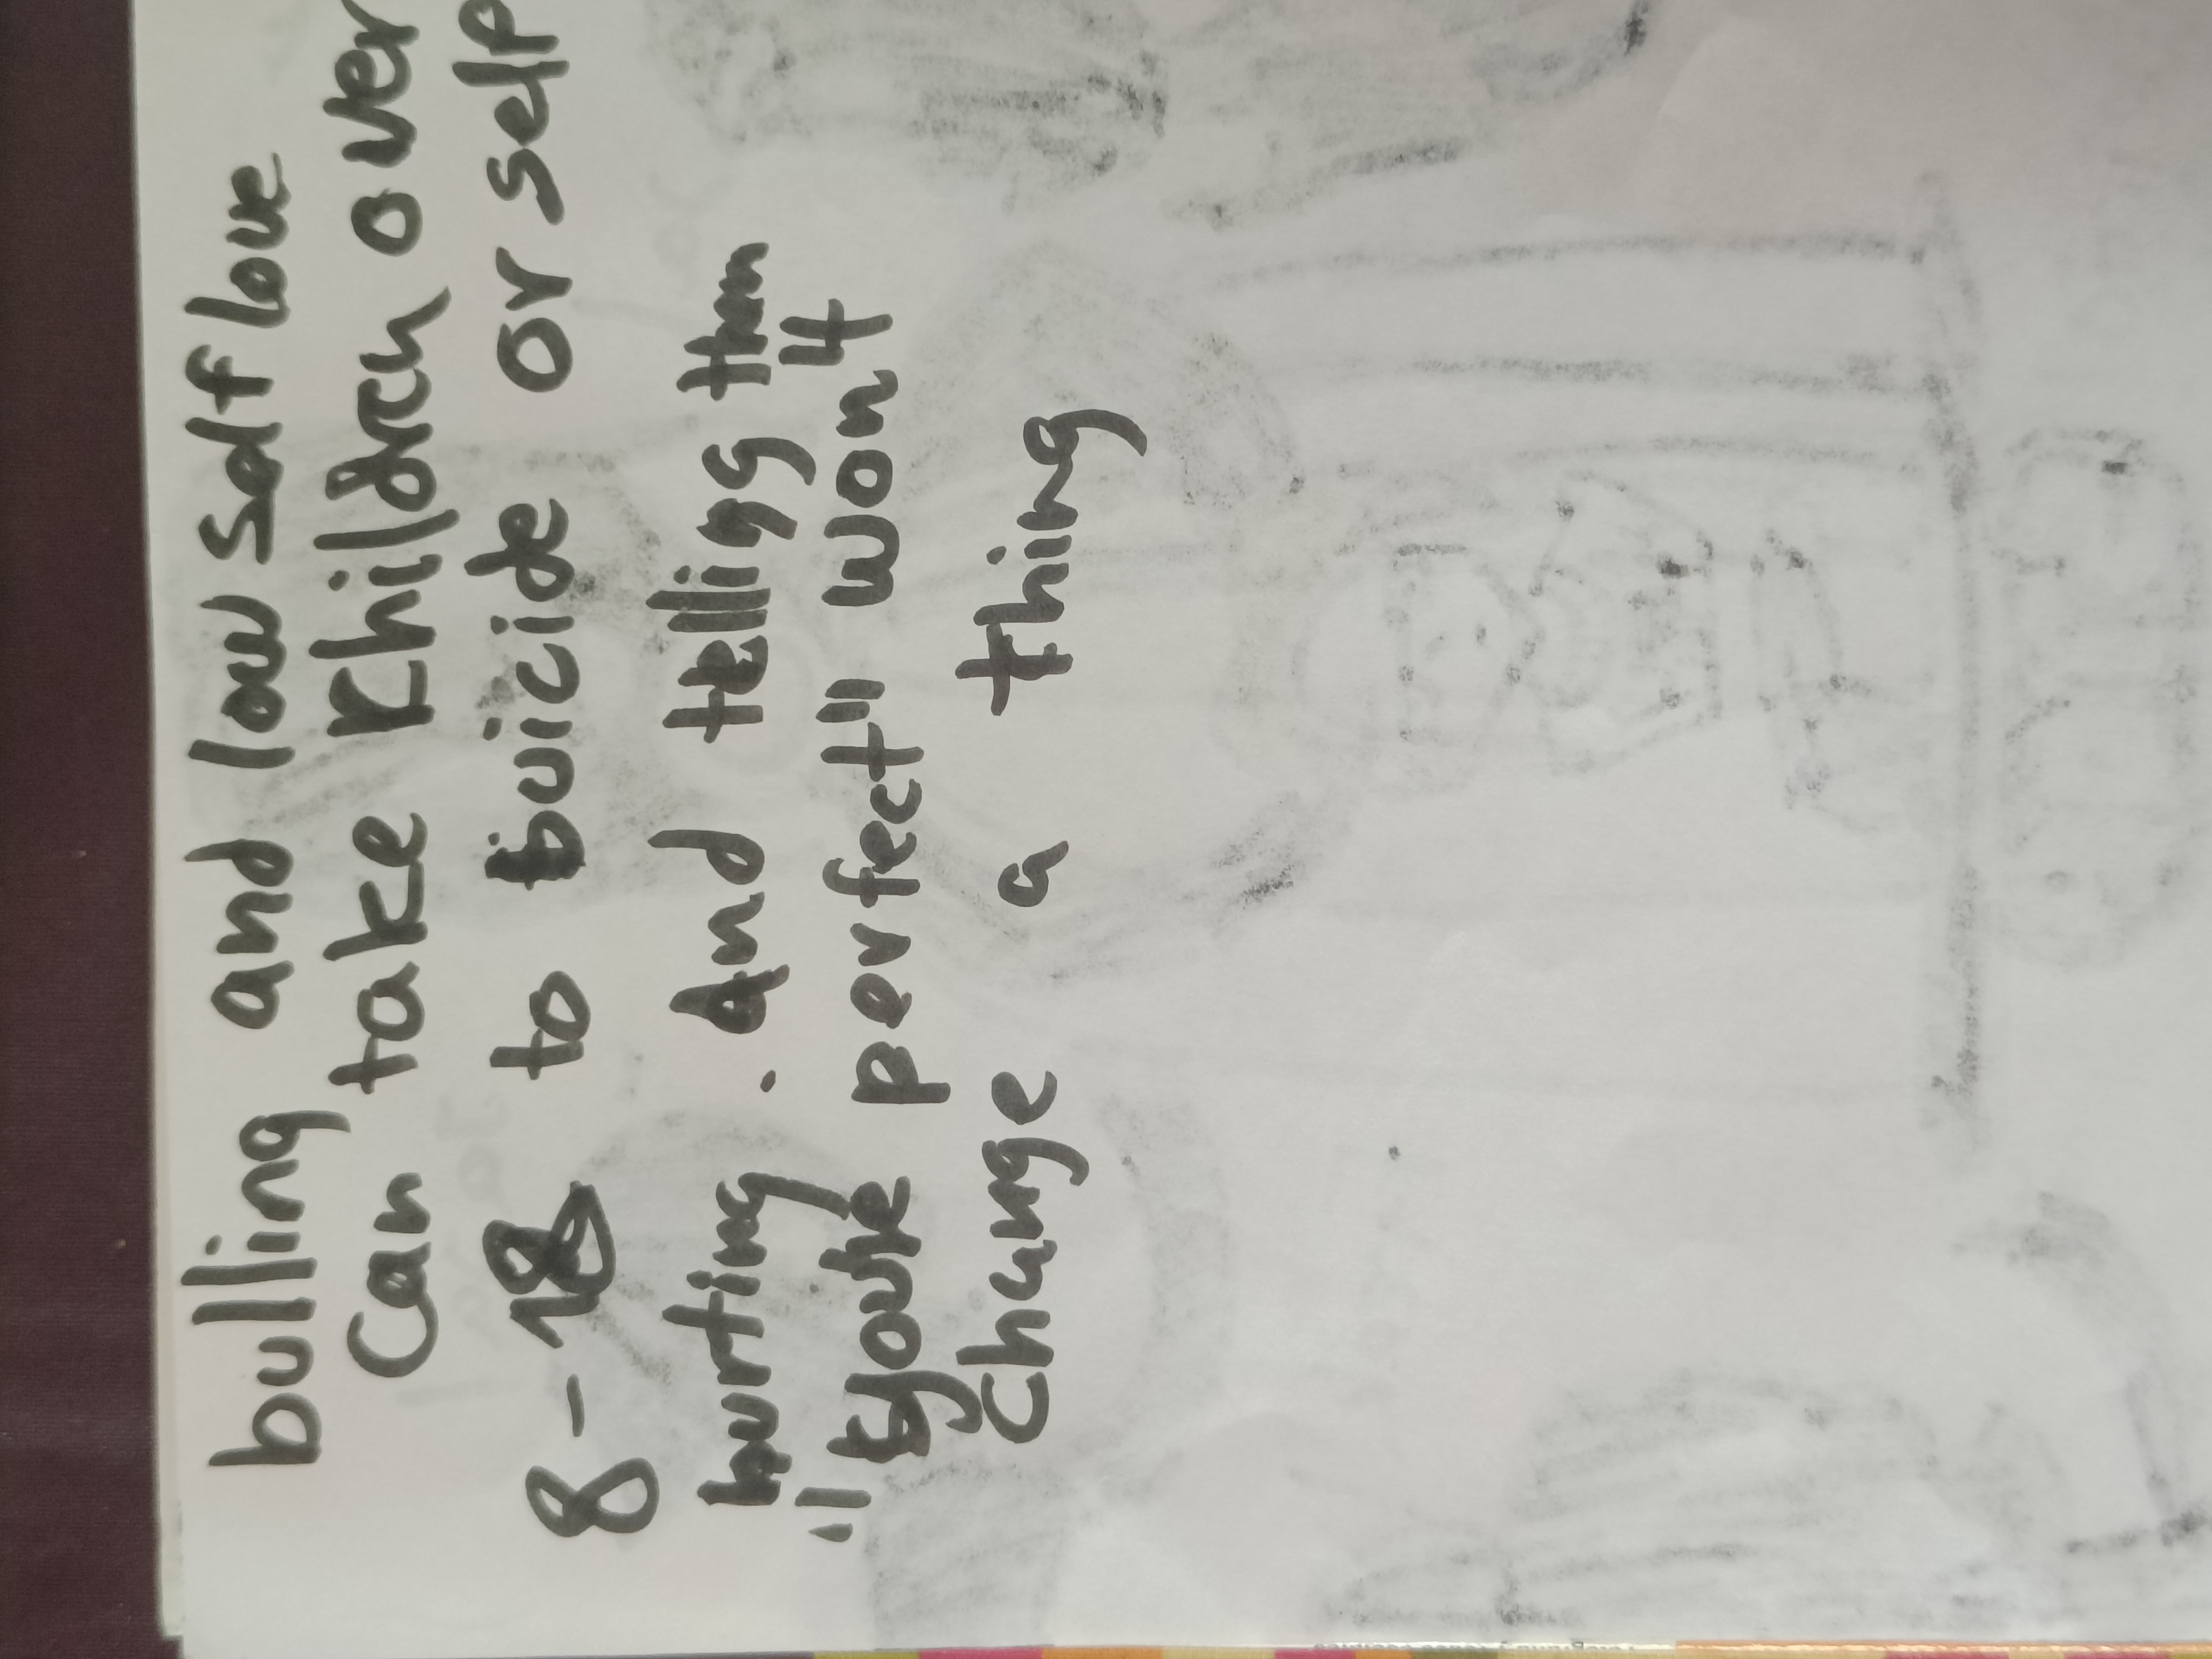 bulling and low self love
Can take Children over
8-18 to suicide or self
hurting. And telling them
"you're perfect" won't
Change a thing